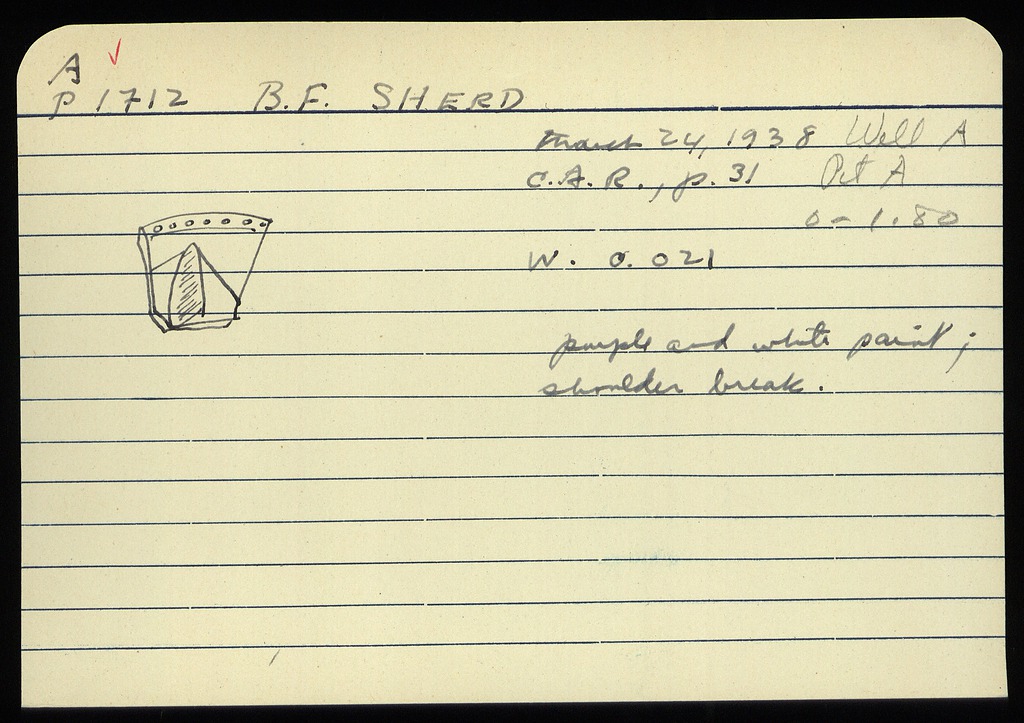 A
P 1712 B.F. SHERD
March 24, 1938 Well A
C.A.R., p. 31 Pit A
0 - 1.80
W. 0.021
purple and white paint;
shoulder break.